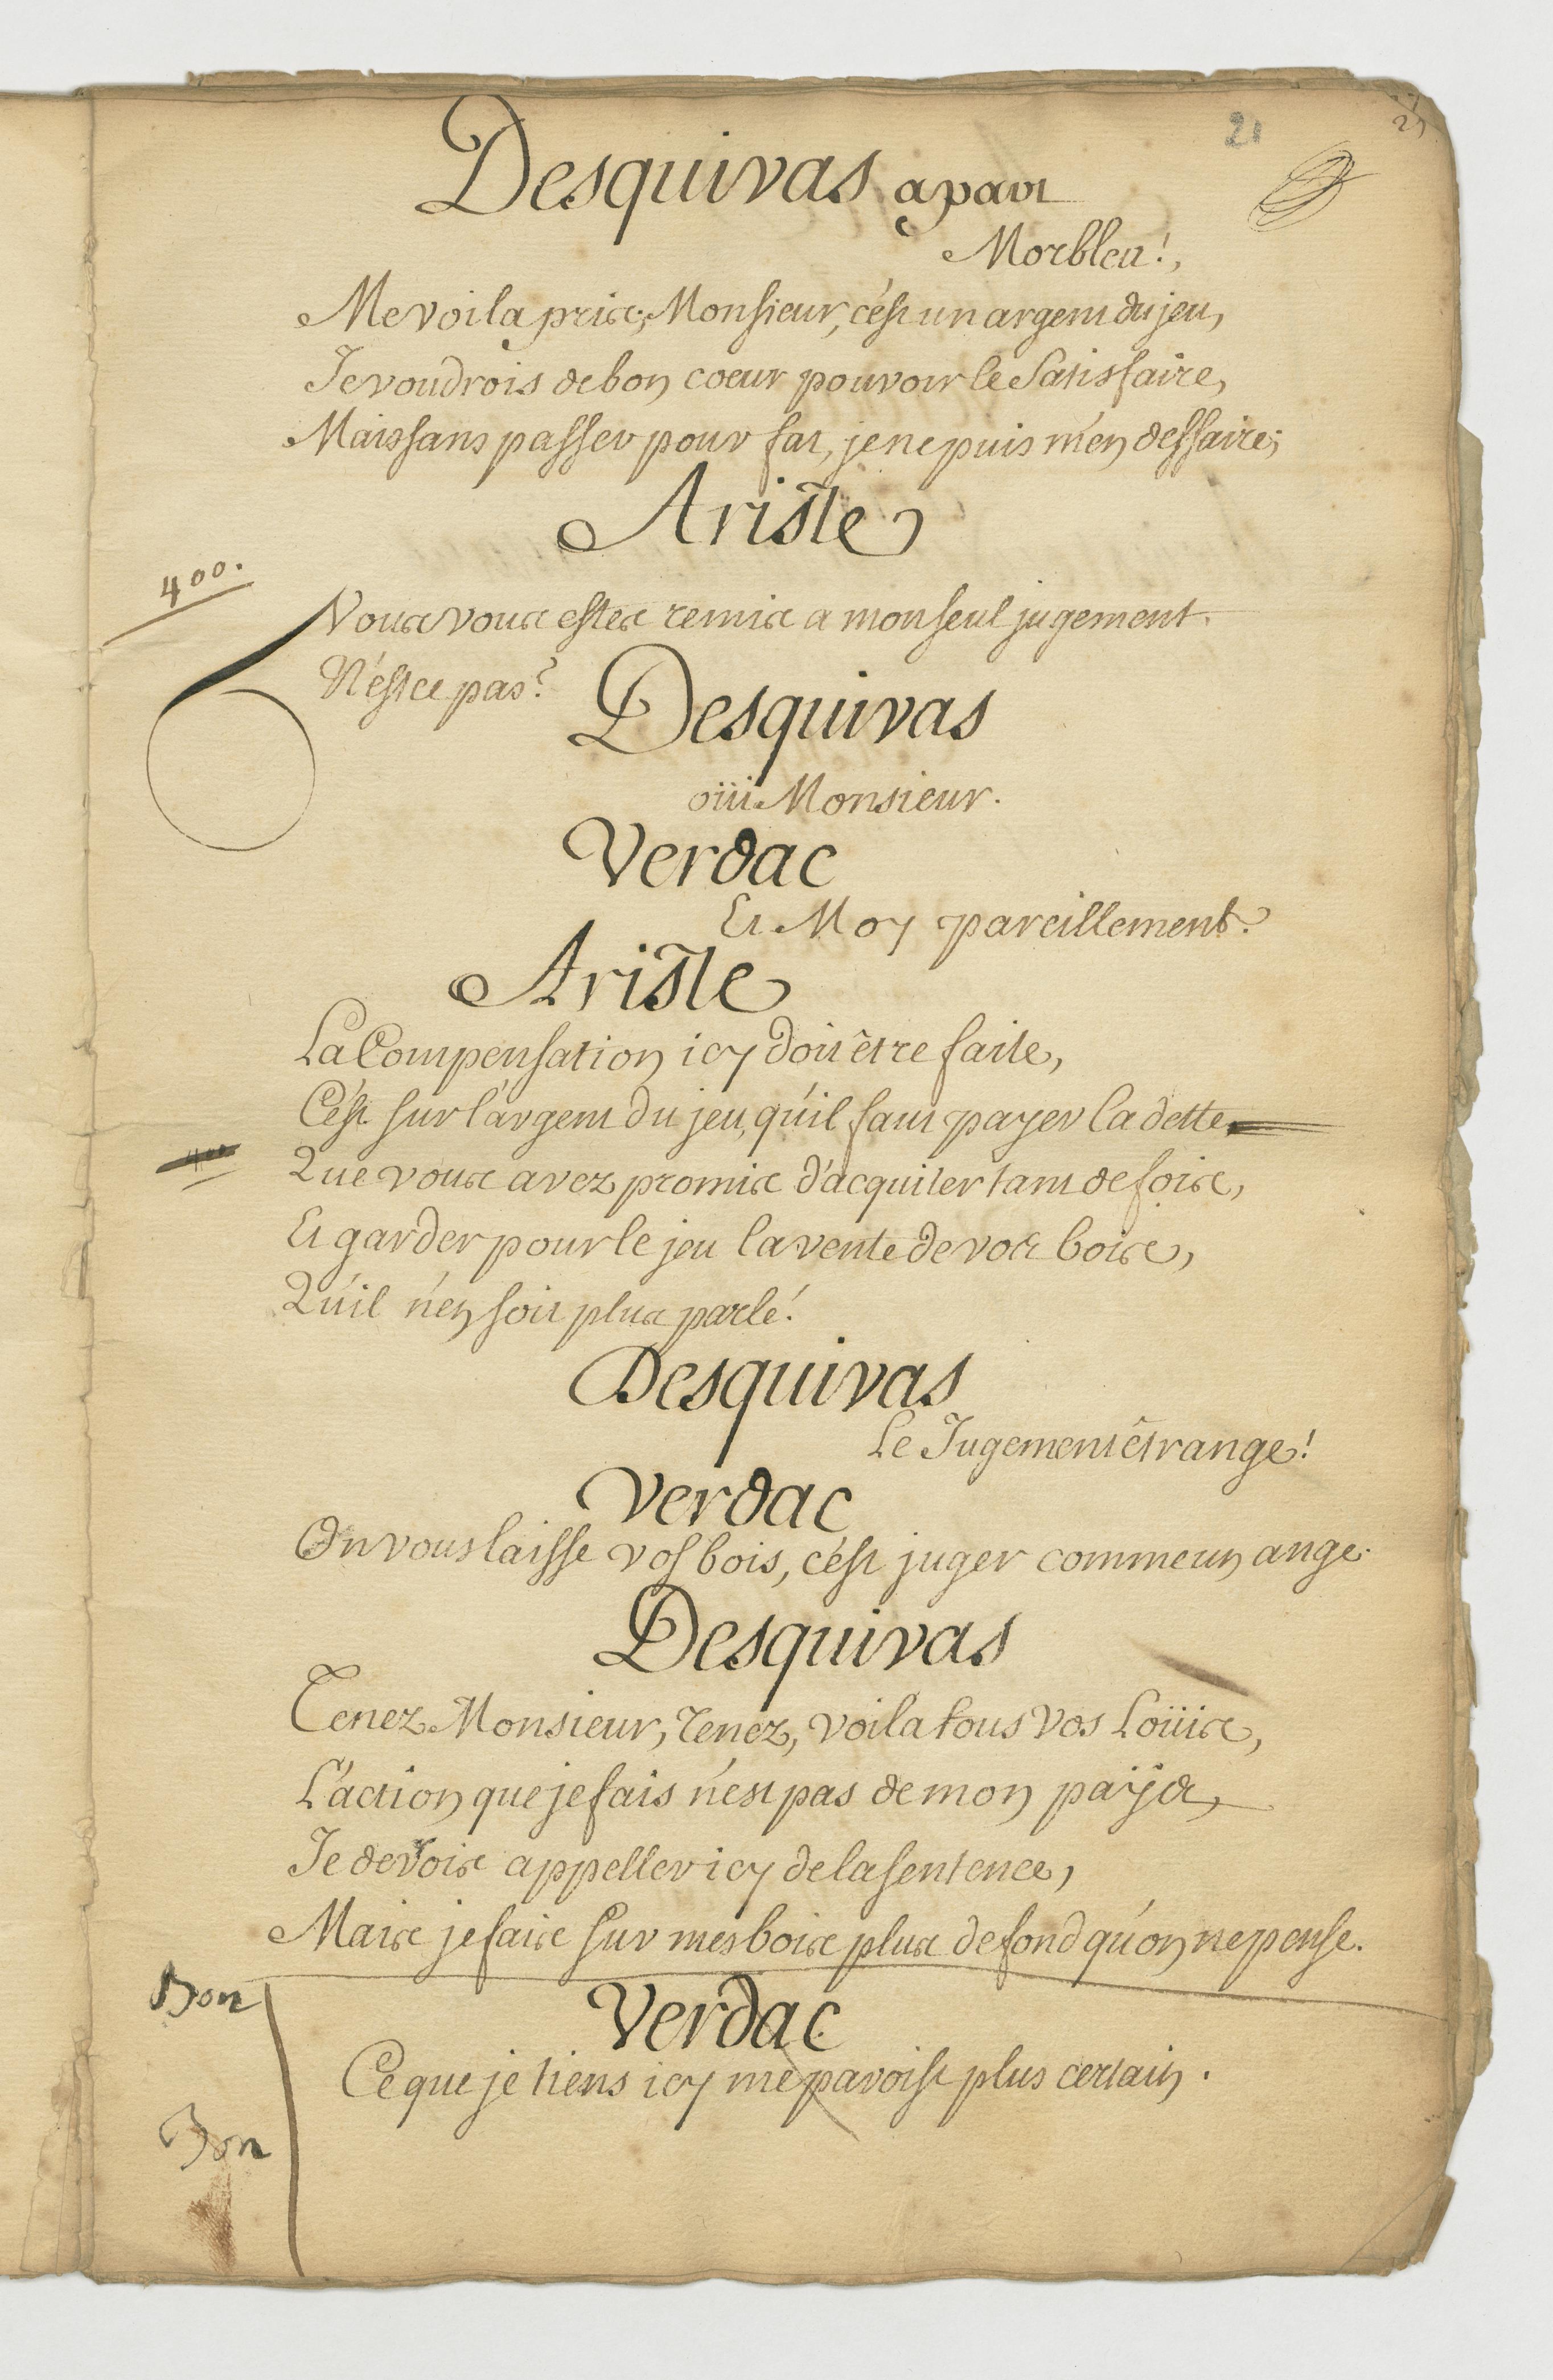 21
Desquivas apart
Morbleu!,
Me voila pris; Monsieur, c'est un argent du jeu,
Je voudrois de bon coeur pouvoir le Satisfaire,
Mais sans passer pour fat, je ne puis m'en deffaire;
Ariste
400.
Vous vous estes remis a mon seul jugement.
N'est ce pas?
Desquivas
oüi Monsieur.
Verdac
Et Moy pareillement.
Ariste
La Compensation icy doit être faite,
C'est sur l'argent du jeu, qu'il faut payer la dette
400
Que vous avez promis d'acquiter tant de fois,
Et garder pour le jeu la vente de vos bois,
Qu'il n'en soit plus parlé!
Desquivas
Le Jugement êtrange!
Verdac
On vous laisse vos bois, c'est juger comme un ange.
Desquivas
Tenez Monsieur, Tenez, voila tous vos Loüis,
L'action que je fais n'est pas de mon païs,
Je devois appeller icy de la sentence,
Mais je fais sur mes bois plus de fond qu'on ne pense.
Bon
Verdac
Ce que je tiens icy me paroist plus certain.
Bon